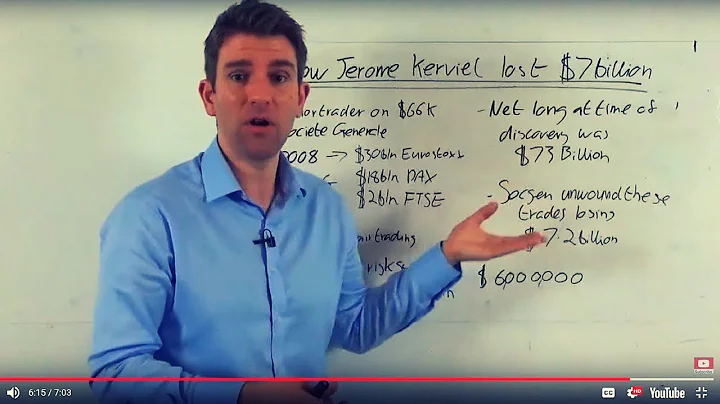 ow Jerome Kerviel lost $7 billion
ior trader on $66K
ociete Generale
008 → $30bln Eurostoxx
$18bln DAX
$2bln FTSE
trading
risks
- Net long at time of
discovery was
$73 Billion
- Socgen unwound these
trades losing
$7.2 billion
$6,000,000
Subscribe
6:15 / 7:03
CC
HD
YouTube